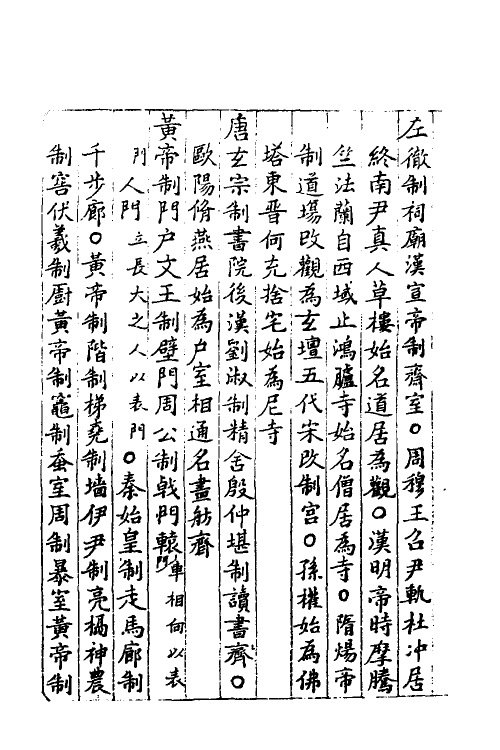 左徹制祠廟漢宣帝制齋室○周穆王召尹軌杜冲居
終南尹真人草樓始名道居為觀○漢明帝時摩騰
竺法蘭自西域止鴻臚寺始名僧居為寺○隋煬帝
制道塲改觀為玄壇五代宋改制宫○孫權始為佛
塔東晋何充捨宅始為尼寺
唐玄宗制書院後漢劉淑制精舍殷仲堪制讀書齋○
歐陽脩燕居始為户室相通名畫舫齋
黃帝制門户文王制壁門周公制戟門轅門車相向以表
門人門立長大之人以表門○秦始皇制走馬廊制
千步廊○黃帝制階制梯堯制墻伊尹制亮槅神農
制窖伏羲制厨黃帝制竈制蚕室周制暴室黃帝制